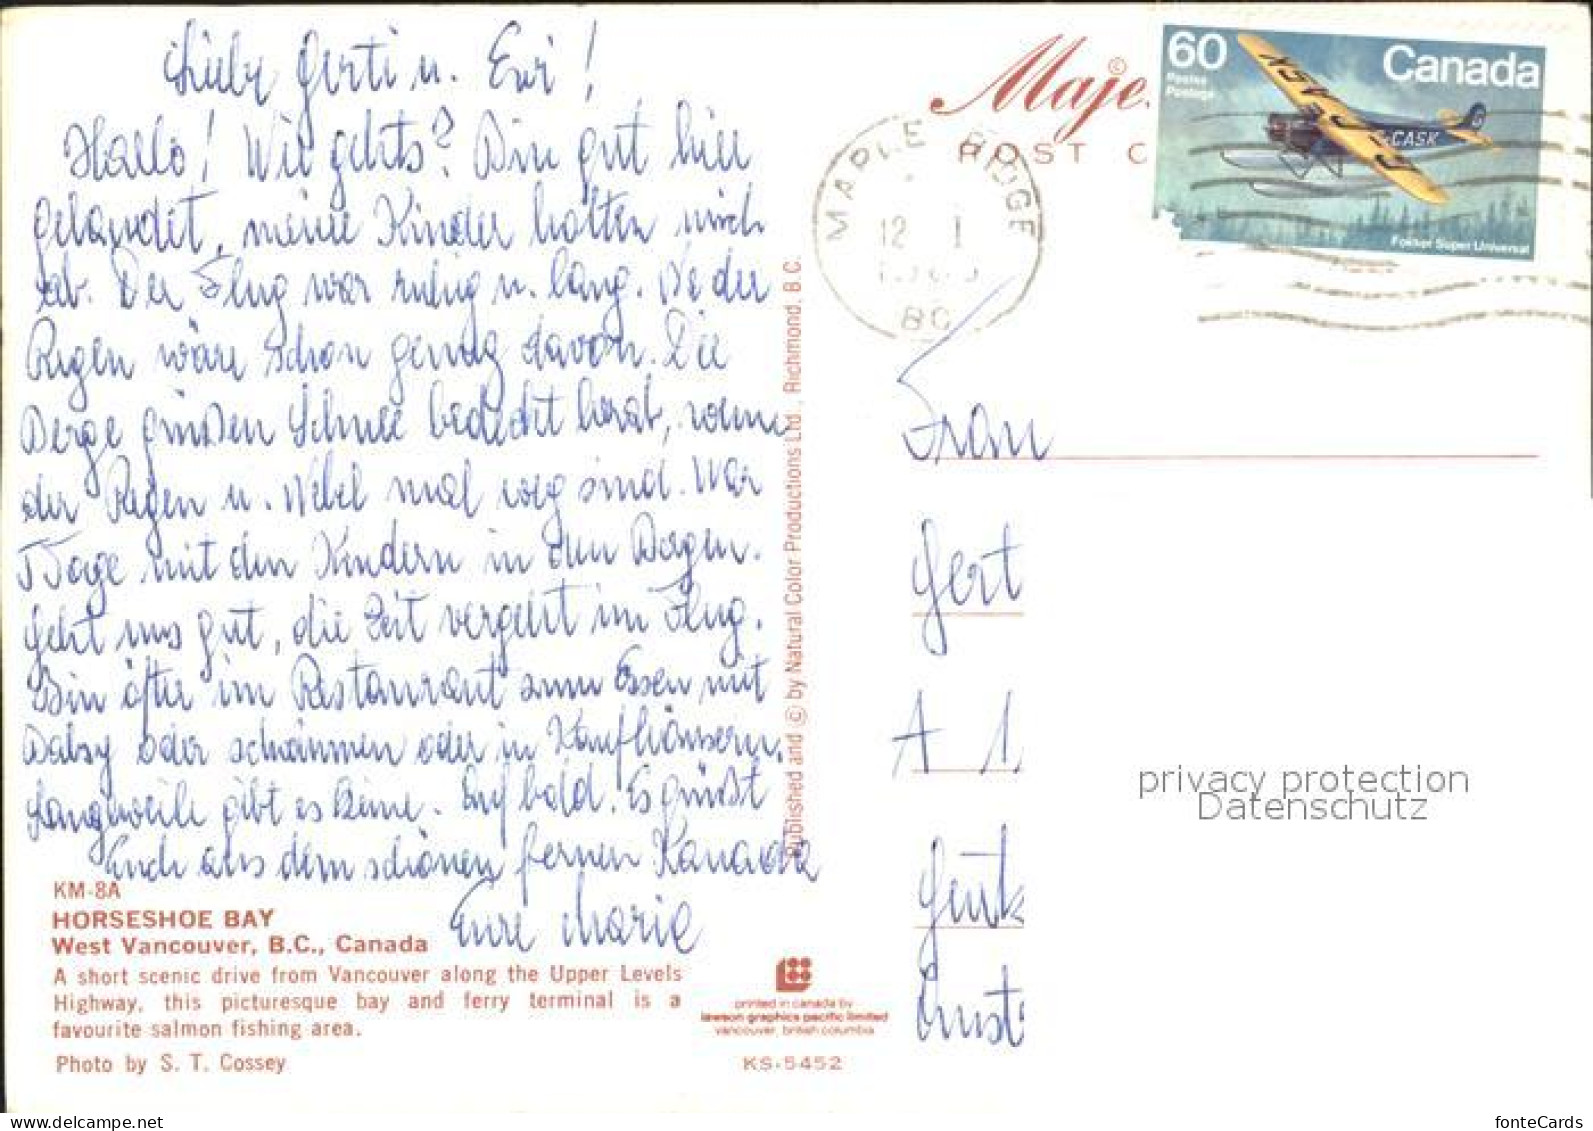 Liebe Gerti u. Evi!
Hallo! Wie gehts? Bin gut hier
gelandet, meine Kinder holten mich
ab. Der Flug war ruhig u. lang.
Regen wäre schon genug davon. Die
Berge grüßen Schnee bedeckt herab, wenn
der Regen u. Nebel mal weg sind. War
Tage mit den Kindern in den Bergen.
Geht uns gut, die Zeit vergeht im Flug.
Bin öfter im Restaurant zum Essen mit
oder schwimmen oder in Kaufhäusern.
Langeweile gibt es keine. Auf bald. Es grüßt
Euch aus dem schönen fernen Kanada
Eure Marie
KM-8A
HORSESHOE BAY
West Vancouver, B.C., Canada
A short scenic drive from Vancouver along the Upper Levels
Highway, this picturesque bay and ferry terminal is a
favourite salmon fishing area.
Photo by S. T. Cossey
Published and © by Natural Color Productions Ltd., Richmond, B.C.
printed in canada by
lawson graphics pacific limited
vancouver, british columbia
KS-5452
©
Maje.
POST C
MAPLE RIDGE
12 I
BC
60
Postes
Postage
Canada
CASK
Fokker Super Universal
Frau
Gert
A 1
privacy protection
Datenschutz
fonteCards